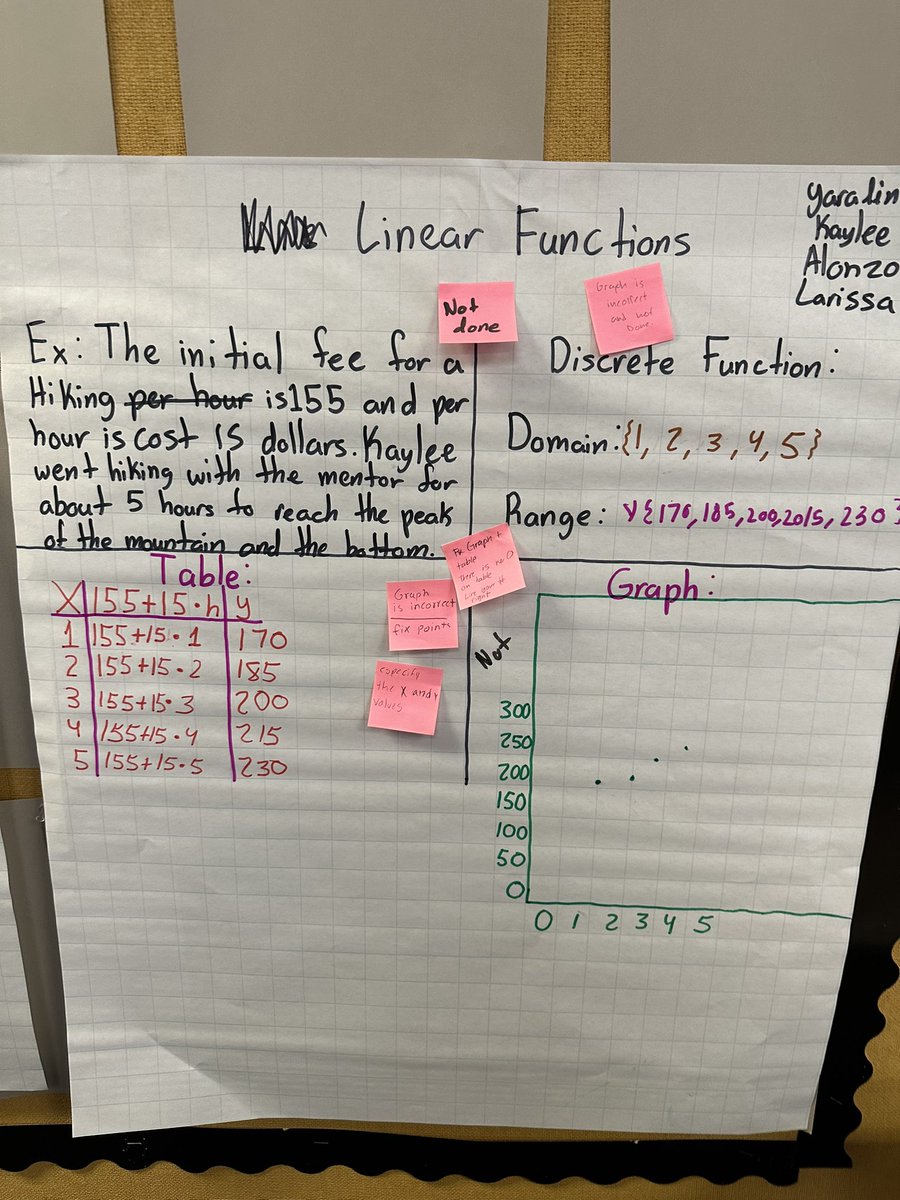 Linear Functions
Yaralin
Kaylee
Alonzo
Larissa
Not
done
Graph is
incorrect
and not
Done.
Ex: The initial fee for a
Hiking per hour is 155 and per
hour is cost 15 dollars. Kaylee
went hiking with the mentor for
about 5 hours to reach the peak
of the mountain and the bottom.
Discrete Function:
Domain: {1, 2, 3, 4, 5}
Range: y{170, 185, 200, 2015, 230}
Table:
X 155+15·h y
1 155+15·1 170
2 155+15·2 185
3 155+15·3 200
4 155+15·4 215
5 155+15·5 230
Graph
is incorrect
fix points
Fix Graph +
table
There is no 0
on table
your
right
especify
the X and Y
values
Not
Graph:
300
250
200
150
100
50
0
0 1 2 3 4 5